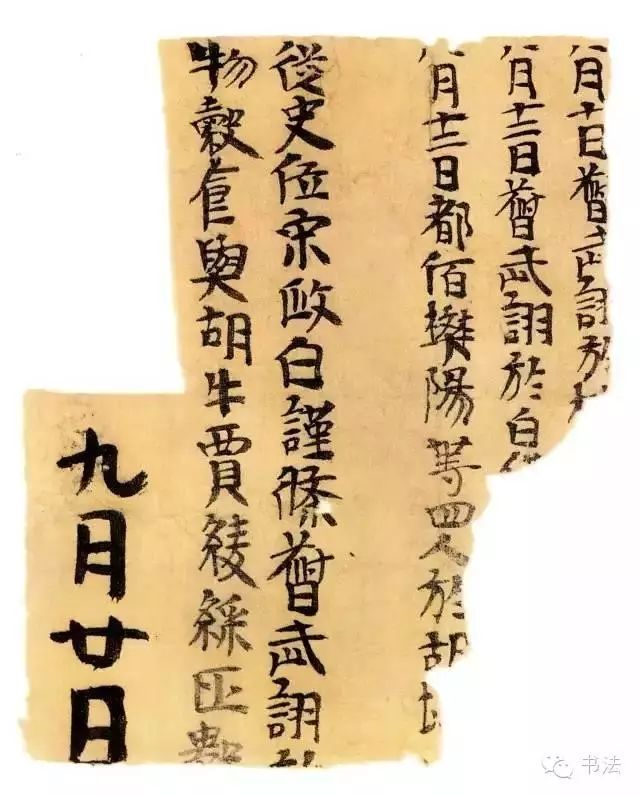 月十日武詡於
月十二日武詡於白
月十三日都佰樊陽等四人於胡
從史位宋政白謹條武詡
物穀食與胡牛賈綾綵匹數
九月廿日
书法